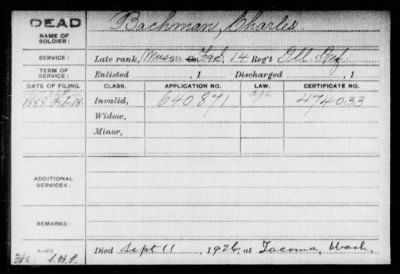 DEAD
NAME OF SOLDIER: Bachman, Charles
SERVICE: Late rank, 14 Reg't Ill Inf
TERM OF SERVICE: Enlisted , 1 Discharged , 1
DATE OF FILING. CLASS. APPLICATION NO. LAW. CERTIFICATE NO.
1888 Feb 18 Invalid, 640871 474033
Widow,
Minor,
ADDITIONAL SERVICES:
REMARKS:
Died Sept 11, 1926, at Tacoma, Wash.